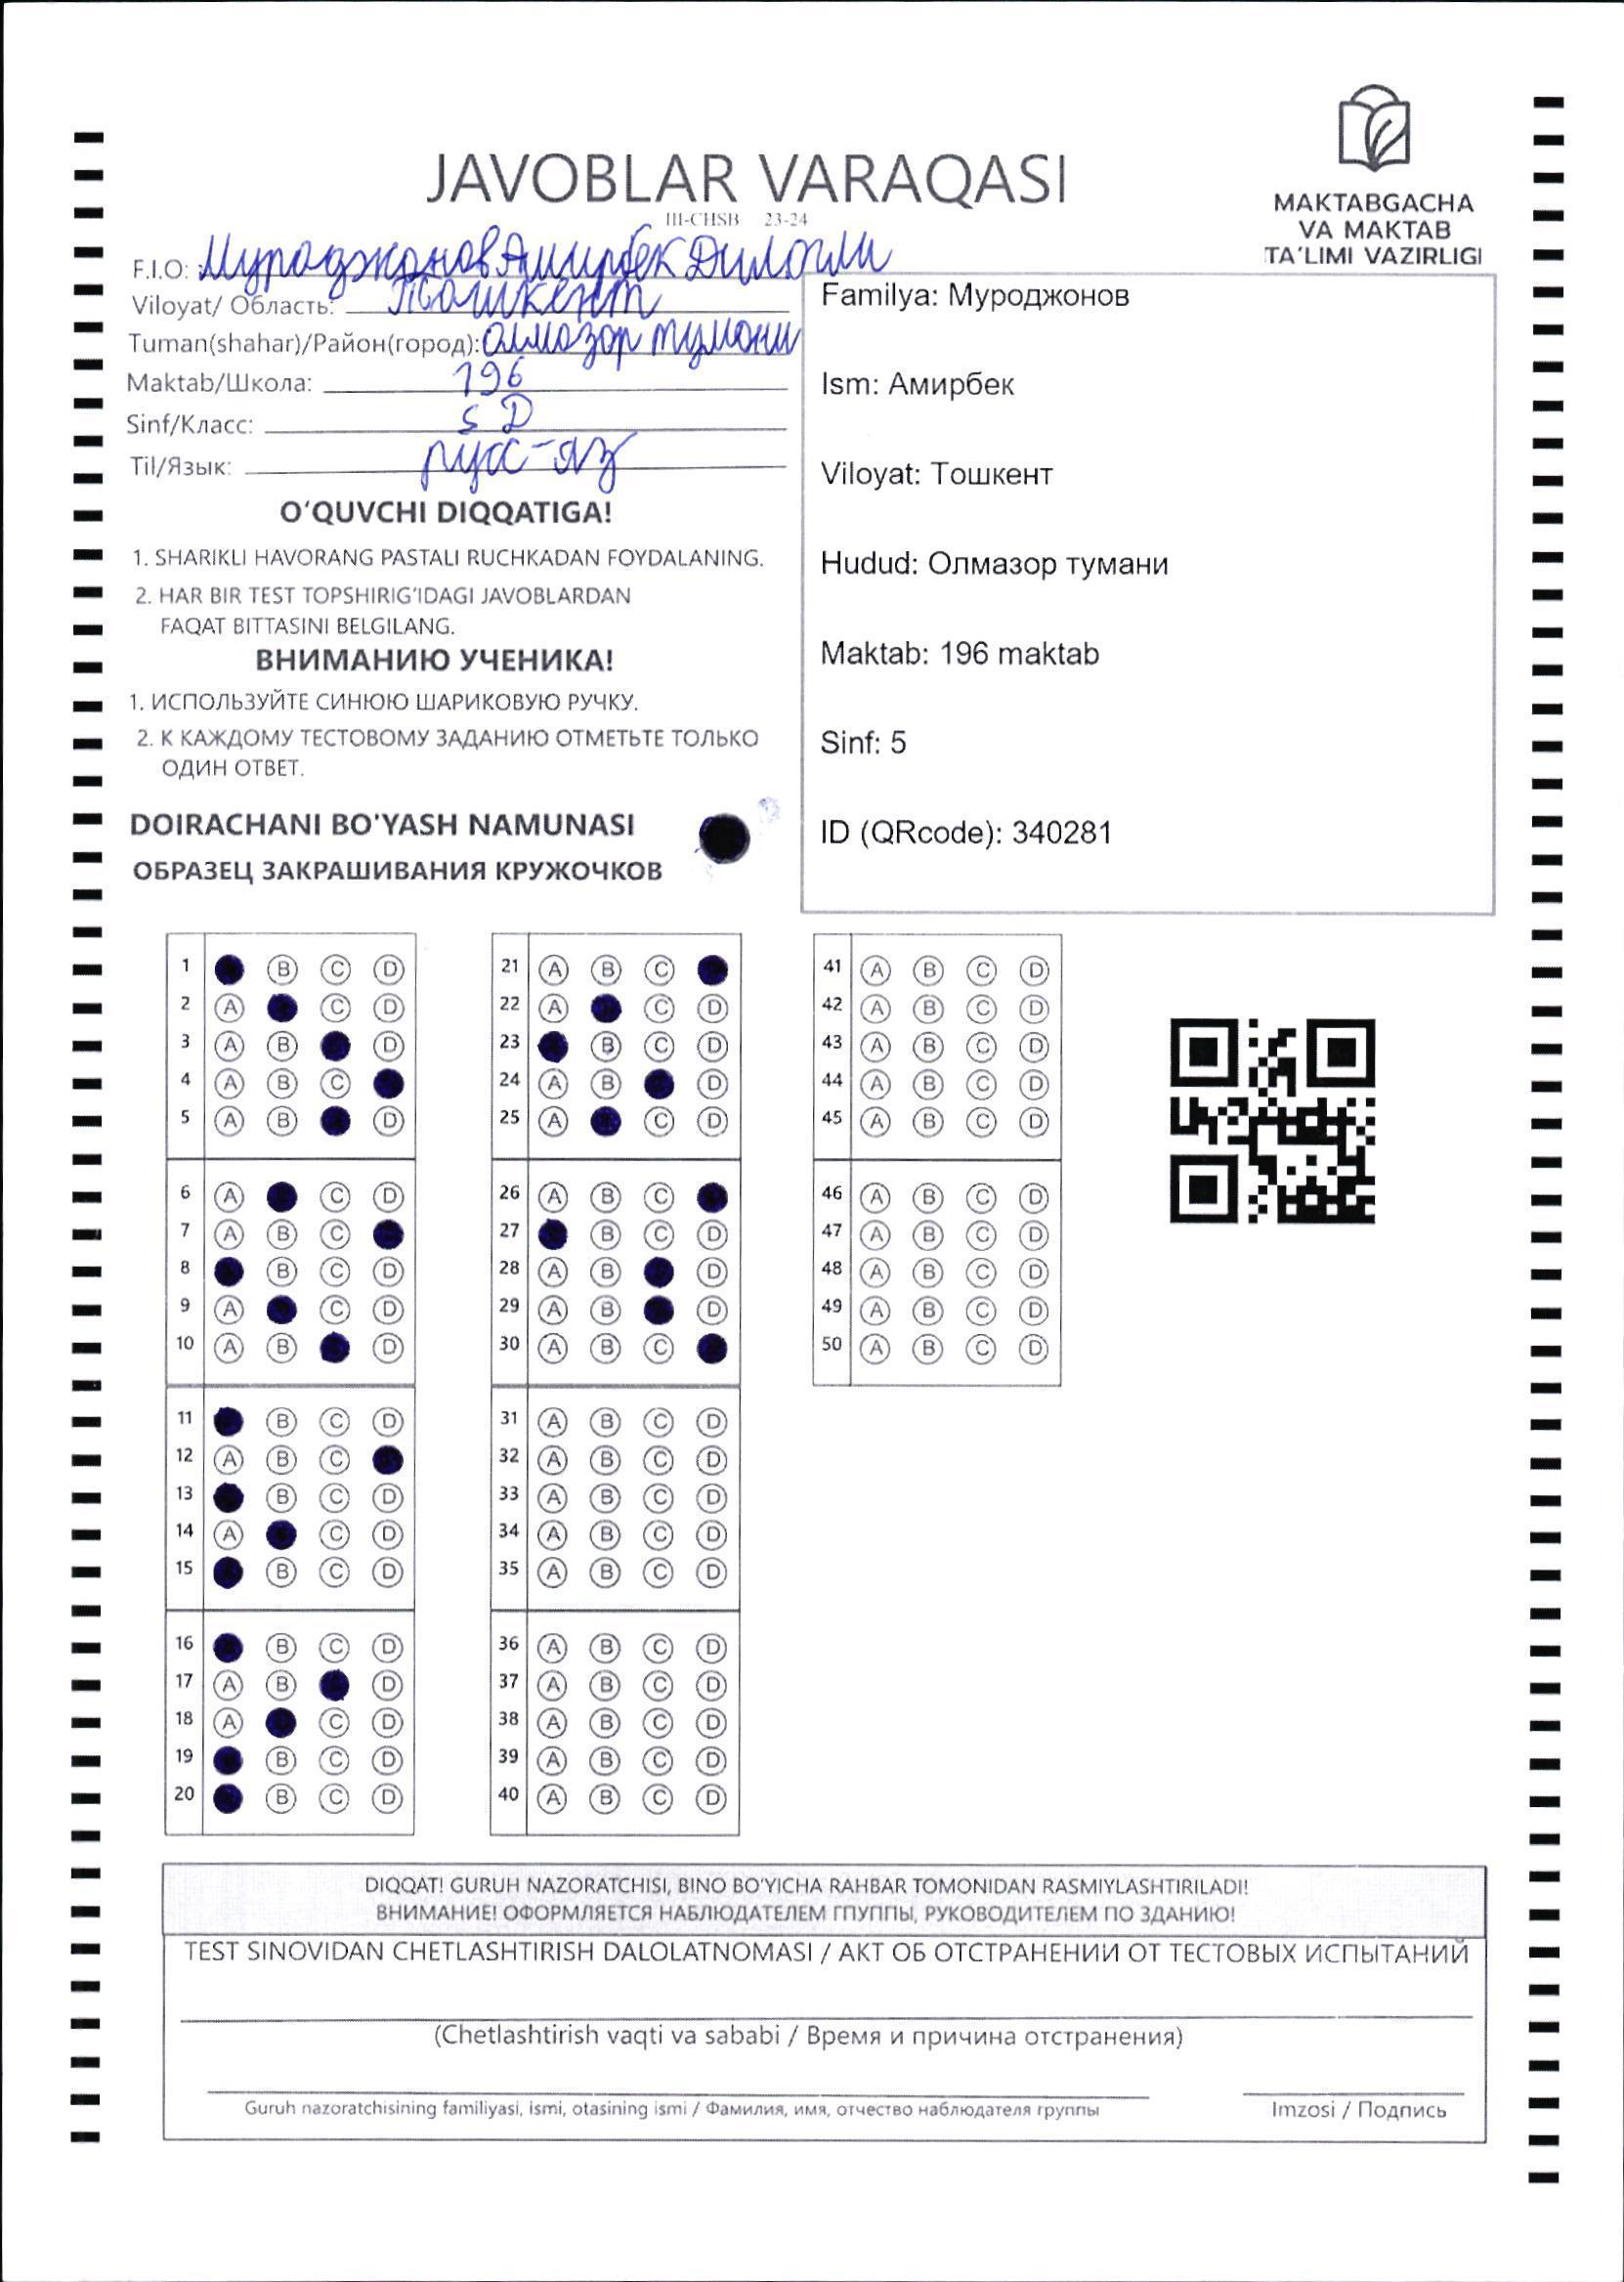 JAVOBLAR VARAQASI
III-CHSB 23-24
MAKTABGACHA
VA MAKTAB
TA'LIMI VAZIRLIGI
F.I.O: Муроджонов Амирбек
Viloyat/ Область: Тошкент
Tuman(shahar)/Район(город): Олмазор тумони
Maktab/Школа: 196
Sinf/Класс: 5 D
Til/Язык: русс-яз
Familya: Муроджонов
Ism: Амирбек
Viloyat: Тошкент
Hudud: Олмазор тумани
Maktab: 196 maktab
Sinf: 5
ID (QRcode): 340281
O'QUVCHI DIQQATIGA!
1. SHARIKLI HAVORANG PASTALI RUCHKADAN FOYDALANING.
2. HAR BIR TEST TOPSHIRIG'IDAGI JAVOBLARDAN
FAQAT BITTASINI BELGILANG.
ВНИМАНИЮ УЧЕНИКА!
1. ИСПОЛЬЗУЙТЕ СИНЮЮ ШАРИКОВУЮ РУЧКУ.
2. К КАЖДОМУ ТЕСТОВОМУ ЗАДАНИЮ ОТМЕТЬТЕ ТОЛЬКО
ОДИН ОТВЕТ.
DOIRACHANI BO'YASH NAMUNASI
ОБРАЗЕЦ ЗАКРАШИВАНИЯ КРУЖОЧКОВ
1 B C D
2 A C D
3 A B D
4 A B C
5 A B D
6 A C D
7 A B C
8 B C D
9 A C D
10 A B D
11 B C D
12 A B C
13 B C D
14 A C D
15 B C D
16 B C D
17 A B D
18 A C D
19 B C D
20 B C D
21 A B C
22 A C D
23 B C D
24 A B D
25 A C D
26 A B C
27 B C D
28 A B D
29 A B D
30 A B C
31 A B C D
32 A B C D
33 A B C D
34 A B C D
35 A B C D
36 A B C D
37 A B C D
38 A B C D
39 A B C D
40 A B C D
41 A B C D
42 A B C D
43 A B C D
44 A B C D
45 A B C D
46 A B C D
47 A B C D
48 A B C D
49 A B C D
50 A B C D
DIQQAT! GURUH NAZORATCHISI, BINO BO'YICHA RAHBAR TOMONIDAN RASMIYLASHTIRILADI!
ВНИМАНИЕ! ОФОРМЛЯЕТСЯ НАБЛЮДАТЕЛЕМ ГПУППЫ, РУКОВОДИТЕЛЕМ ПО ЗДАНИЮ!
TEST SINOVIDAN CHETLASHTIRISH DALOLATNOMASI / АКТ ОБ ОТСТРАНЕНИИ ОТ ТЕСТОВЫХ ИСПЫТАНИЙ
(Chetlashtirish vaqti va sababi / Время и причина отстранения)
Guruh nazoratchisining familiyasi, ismi, otasining ismi / Фамилия, имя, отчество наблюдателя группы
Imzosi / Подпись